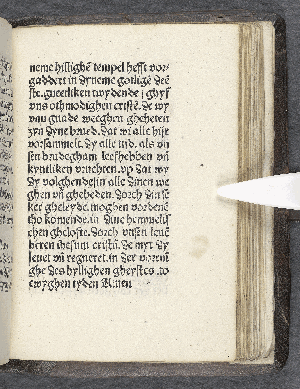 neme hillighē tempel hefft vor
gaddert in dyneme gotlige dēe
ste. guetliken twydende
vns othmodighen cristē. de wy
van gnade weeghen gheheten
zyn dyne brued. Dat wi alle hijr
vorsammelt. dy alle tijd. als vn
sen brudegham leefhebben vñ
kyntliken vruchten. vp dat wy
dy volghende in alle dinen we
ghen vñ gheboden. dorch din
ghelleyde. moghen
tho komende. in dine hemmelis
chen gheloffte. dorch vnsen leue
heren ihesum cristū. de myt dy
leuet vñ regneret. in der
ghe des hyllighen gheystes. to
ewyghen tyden Amen